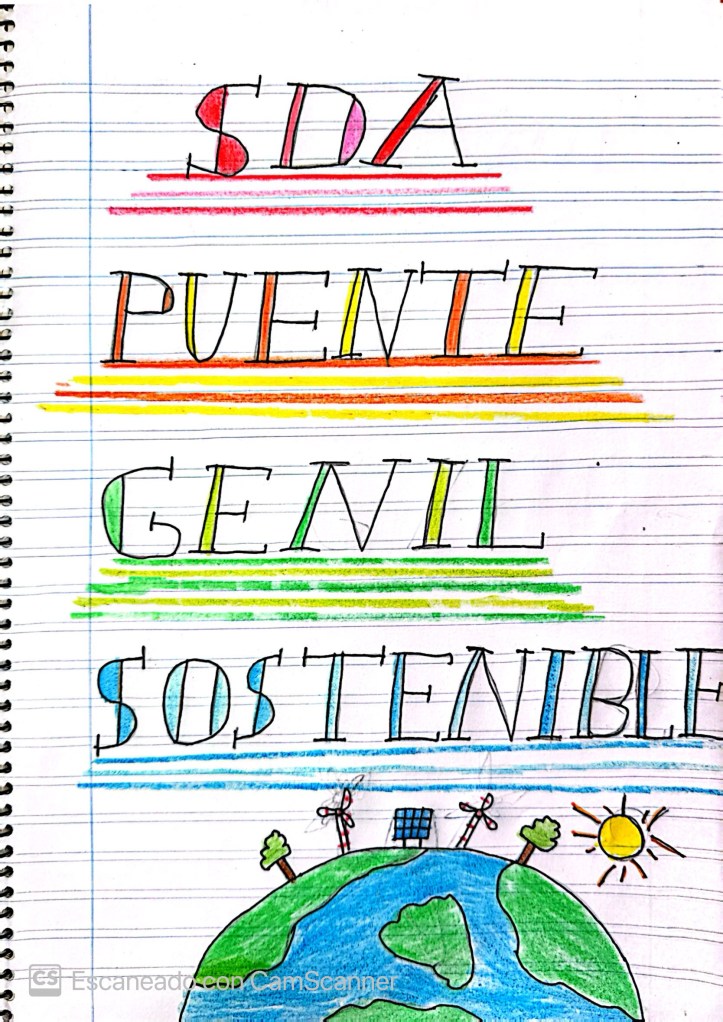 SDA
PUENTE
GENIL
SOSTENIBLE
CS Escaneado con CamScanner